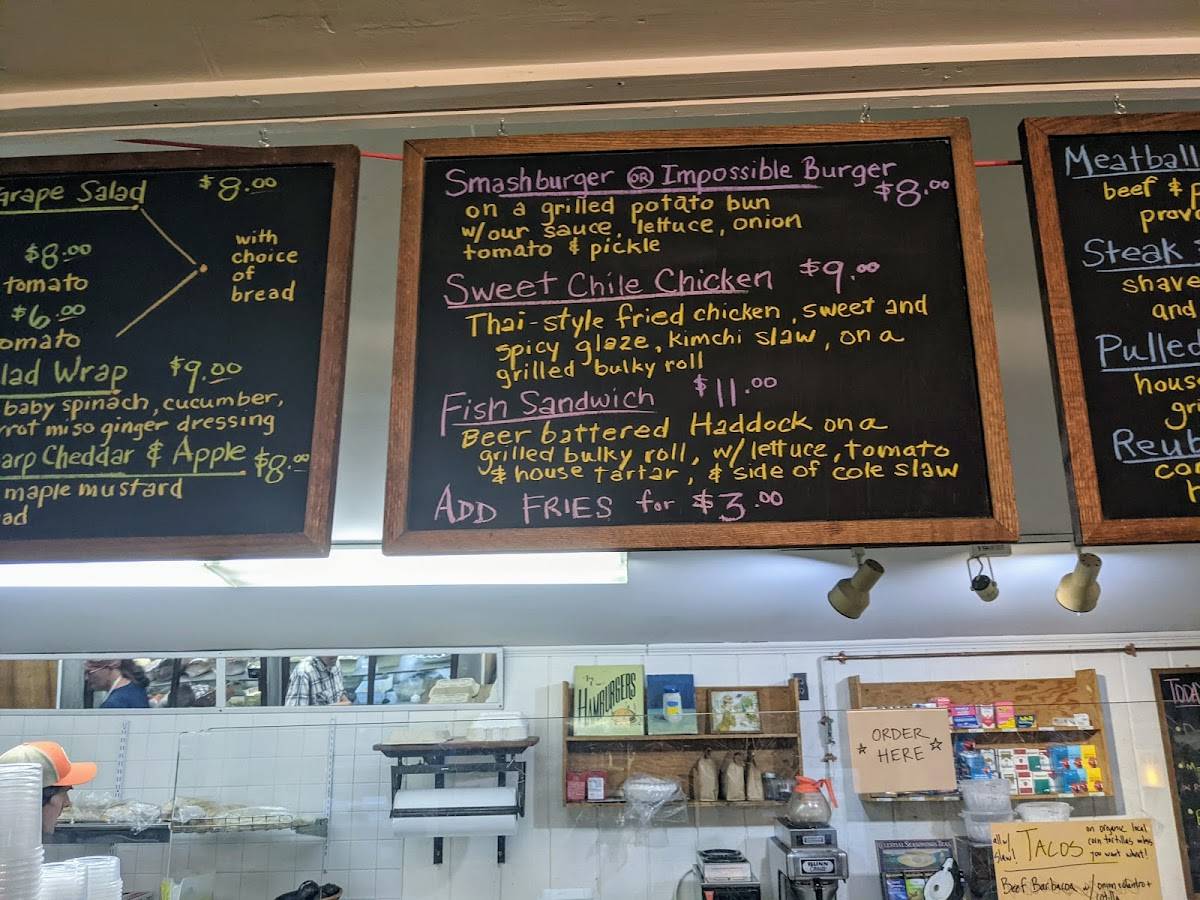 Grape Salad $8.00
$8.00
tomato
$6.00
with
choice
of
bread
Wrap $9.00
baby spinach, cucumber,
miso ginger dressing
Cheddar & Apple $8.00
maple mustard
Smashburger OR Impossible Burger
$8.00
on a grilled potato bun
w/our sauce, lettuce, onion
tomato & pickle
Sweet Chile Chicken $9.00
Thai-style fried chicken, sweet and
spicy glaze, kimchi slaw, on a
grilled bulky roll
Fish Sandwich $11.00
Beer battered Haddock on a
grilled bulky roll, w/ lettuce, tomato
& house tartar, & side of cole slaw
ADD FRIES for $3.00
Meatball
beef &
Steak
and
Pulled
HAMBURGERS
ORDER
HERE
BUNN
CELESTIAL SEASONINGS
all w/
slaw!
TACOS
on organic local
corn tortillas unless
you want wheat!
Beef Barbacoa w/ onion + cilantro +